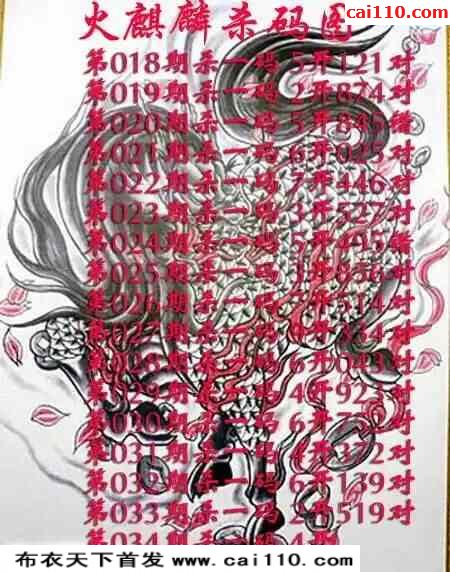 cai110.com
火麒麟杀码图
第018期杀一码 5开121对
第019期杀一码 2开874对
第020期杀一码 5开845错
第021期杀一码 6开025对
第022期杀一码 7开446对
第023期杀一码 3开527对
第024期杀一码 5开495错
第025期杀一码 开856对
第026期杀一码 开514对
第027期杀一码 开 对
第028期杀一码 6开043对
第029期杀一码 4开923对
第030期杀一码 6开 对
第031期杀一码 4开372对
第032期杀一码 6开139对
第033期杀一码 2开519对
第034期杀一码 4开
布衣天下首发 www.cai110.com